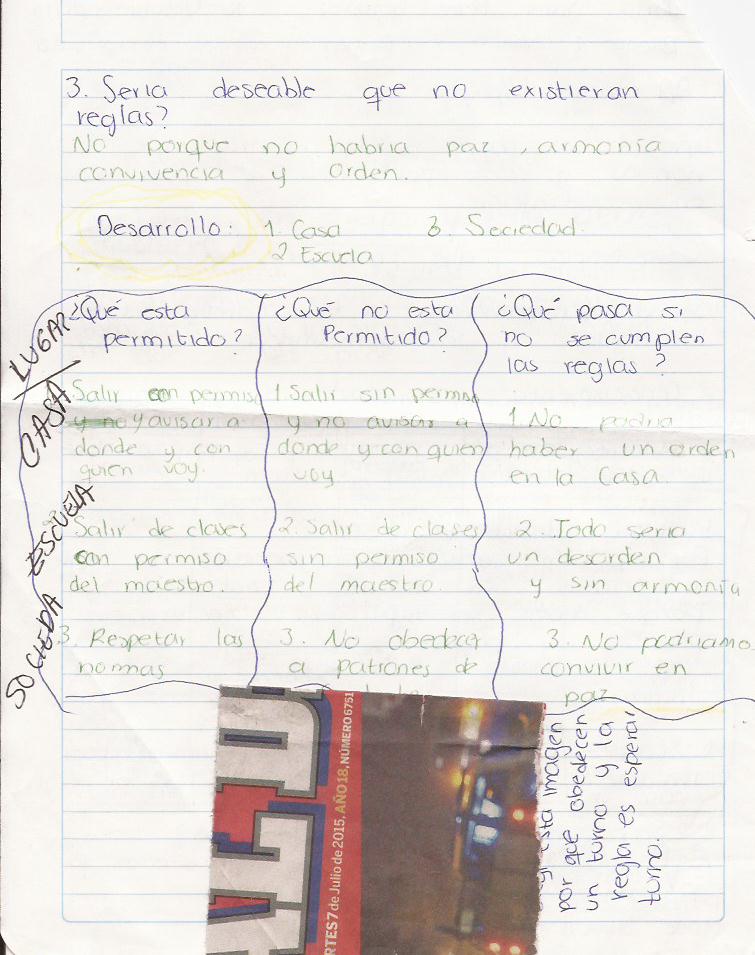 3. Seria deseable que no existieran
reglas?
No porque no habria paz, armonía
convivencia y orden.
Desarrollo: 1. Casa 3. Sociedad.
2 Escuela
LUGAR
¿Qué esta
permitido?
¿Qué no esta
Permitido?
¿Qué pasa si
no se cumplen
las reglas?
CASA
Salir con permiso
y no y avisar a
donde y con
quien voy.
1. Salir sin permiso
y no avisar a
donde y con quien
voy
1. No podria
haber un orden
en la Casa.
ESCUELA
Salir de clases
con permiso
del maestro.
2. Salir de clases
sin permiso
del maestro.
2. Todo seria
un desorden
y sin armonía
SOCIEDA
3. Respetar las
normas
3. No obedecer
a patrones de
3. No podriamos
convivir en
paz
RTES 7 de Julio de 2015, AÑO 18, NÚMERO 6751
esta imagen
por que obedecen
un turno y la
regla es esperar
turno.